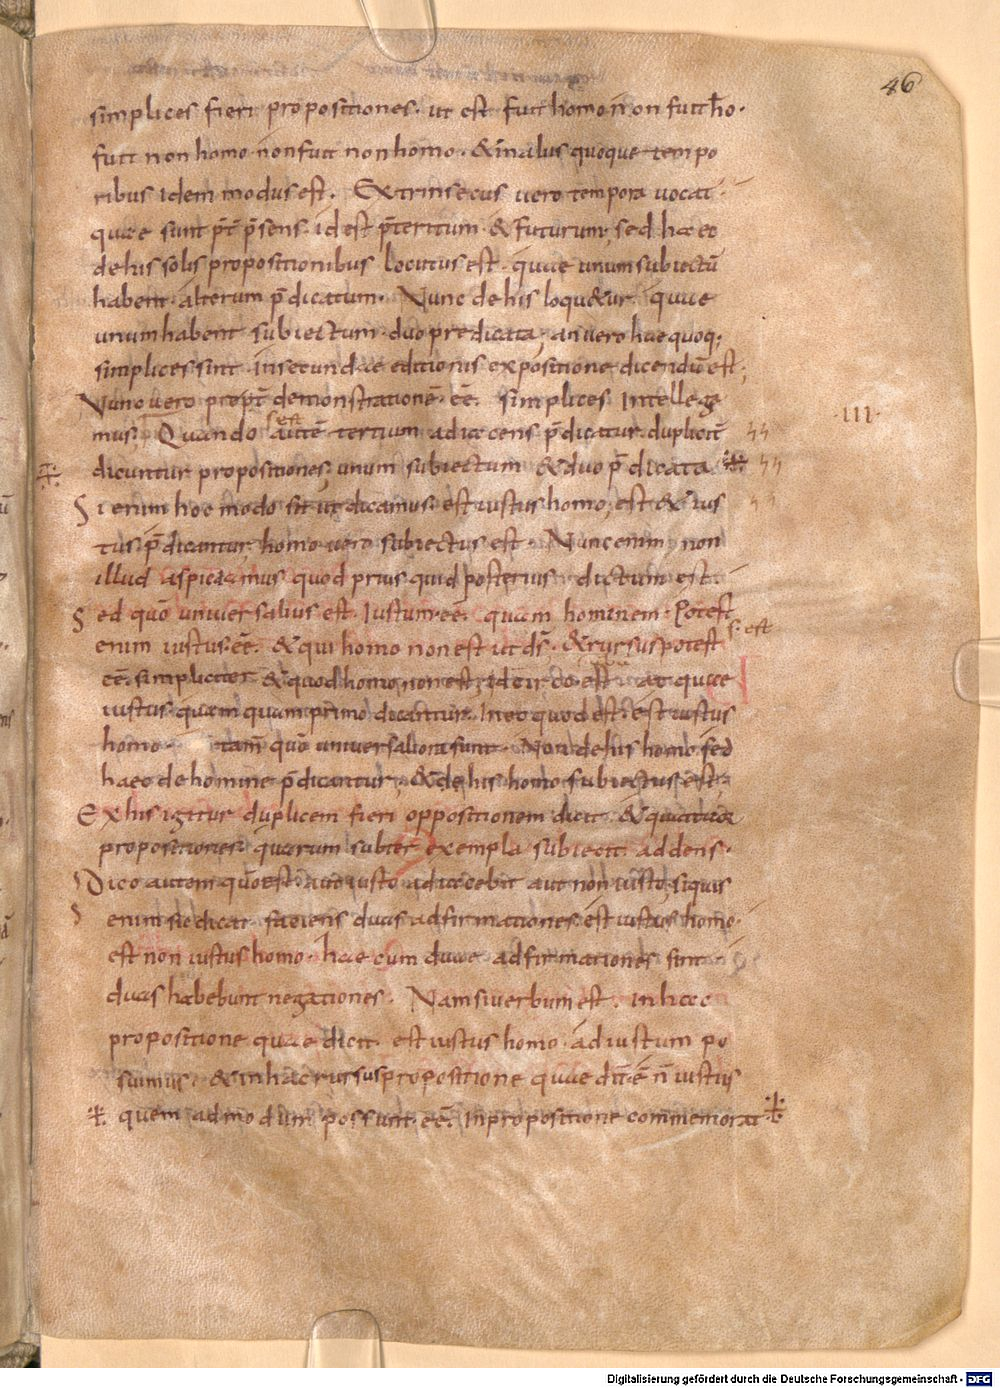 46
simplices fieri propositiones. ut est fuit homo n̄ on fuit ho.
fuit non homo. non fuit non homo. & in aliis quoque tempo
ribus idem modus est. Extrinsecus uero tempora uocat.
quae sunt p̄sens. id est p̄teritum. & futurum, sed haec
de his solis propositionibus locutus est. quae unum subiectū
habent. alterum p̄dicatum. Nunc de his loqu&ur. quae
unum habent subiectum. duo predicata, an uero hae quoq;
simplices sint. in secundae editionis expositione dicendū est;
Nunc uero demonstrationē. eē. simplices. Intellege
mus; Quando autē tertium adiacens p̄dicatur. duplicit̄
s. est
·III·
dicuntur propositiones, unum subiectum & duo p̄dicata
Si enim hoc modo sit ut dicamus. est iustus homo, est & ius
tus p̄dicantur. homo uero subiectus est. Nunc enim non
illud aspiciamus quod prius quid posterius dictum est.
Sed quō uniuersalius est. Iustum. eē. quam hominem. Potest
enim iustus. eē. & qui homo non est ut dš. & rursus potest
s. est
eē. simpliciter & quod homo non est, idcirco est atque
iustus. quamquam primo dicantur. In eo quod est. est iustus
homo. tam̄ quō uniuersaliora sunt. Non de his homo sed
haec de homine p̄dicantur, & de his homo subiectus est;
Ex his igitur duplicem fieri oppositionem dicit. & quattuor
propositiones. quarum subter exempla subiecit. addens.
Dico autem quō est. aut iusto adiacebit aut non iusto, siquis
enim sic dicat. faciens duas adfirmationes. est iustus homo.
est non iustus homo. hae cum duae adfirmationes sint.
duas habebunt negationes. Nam si uerbum est. in hac
propositione quae dicit. est iustus homo. ad iustum po
suimus. & in hac rursus propositione quae dicit. ē. n̄ iustus
quem admodum possunt. eē. In propositione commemorat
Digitalisierung gefördert durch die Deutsche Forschungsgemeinschaft - DFG